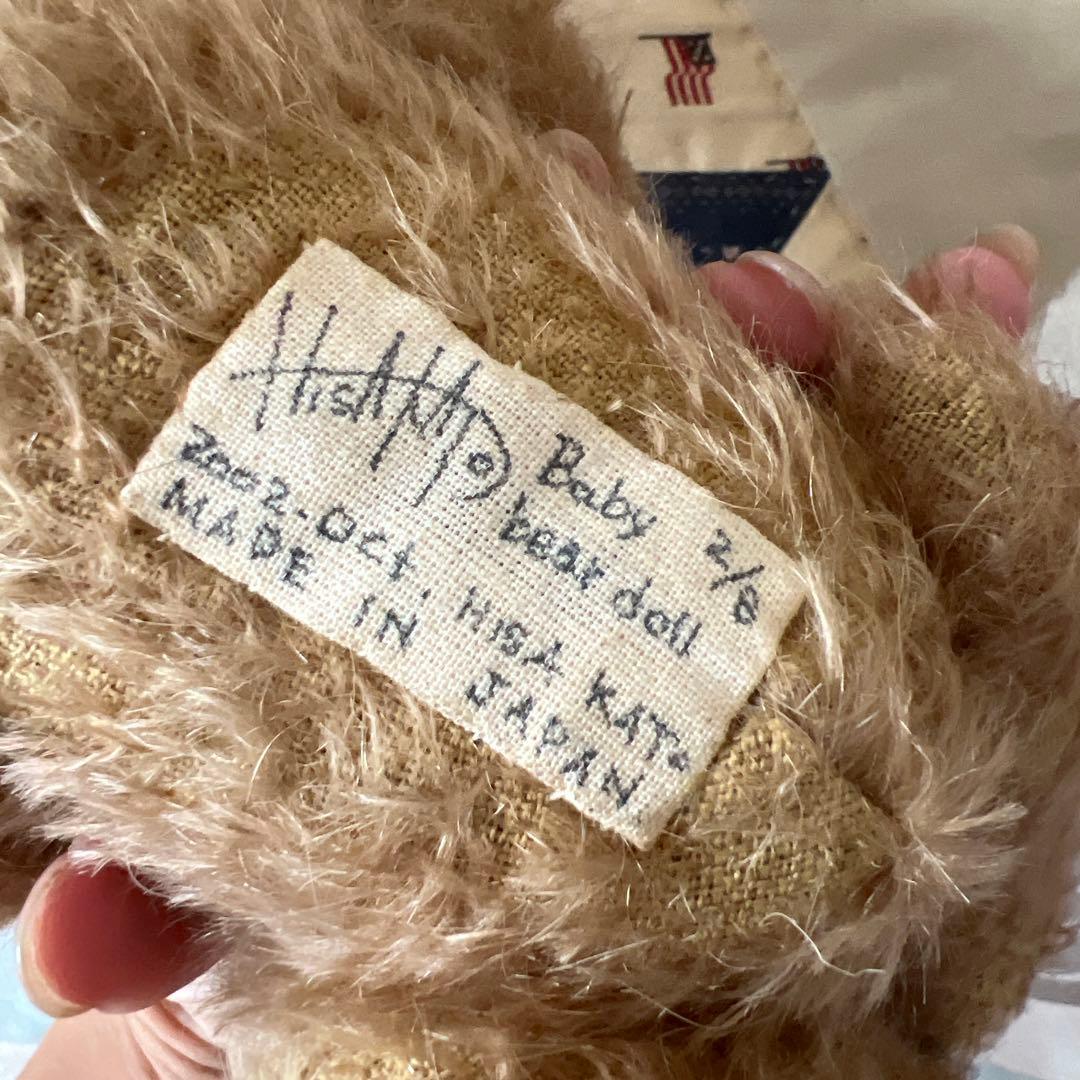 Baby 2/8
bear doll
2002-Oct. HISA KATo
MADE IN JAPAN